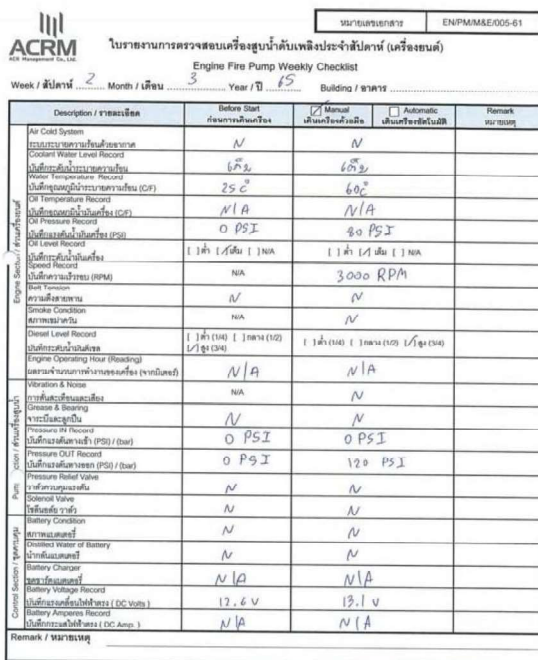 หมายเลขเอกสาร EN/PM/M&E/005-61
ACRM
ACR Management Co., Ltd.
ใบรายงานการตรวจสอบเครื่องสูบน้ำดับเพลิงประจำสัปดาห์ (เครื่องยนต์)
Engine Fire Pump Weekly Checklist
Week / สัปดาห์ 2 Month / เดือน 3 Year / ปี 65 Building / อาคาร
Description / รายละเอียด Before Start ก่อนการเดินเครื่อง [✓] Manual เดินเครื่องด้วยมือ [ ] Automatic เดินเครื่องอัตโนมัติ Remark หมายเหตุ
Engine Section / ส่วนเครื่องยนต์
Air Cold System
ระบบระบายความร้อนด้วยอากาศ N N
Coolant Water Level Record
บันทึกระดับน้ำระบายความร้อน
Water Temperature Record
บันทึกอุณหภูมิน้ำระบายความร้อน (C/F) 25 c° 60c°
Oil Temperature Record
บันทึกอุณหภูมิน้ำมันเครื่อง (C/F) N/A N/A
Oil Pressure Record
บันทึกแรงดันน้ำมันเครื่อง (PSI) 0 PSI 80 PSI
Oil Level Record
บันทึกระดับน้ำมันเครื่อง [ ] ต่ำ [✓] เต็ม [ ] N/A [ ] ต่ำ [✓] เต็ม [ ] N/A
Speed Record
บันทึกความเร็วรอบ (RPM) N/A 3000 RPM
Belt Tension
ความตึงสายพาน N N
Smoke Condition
สภาพเขม่าควัน N/A N
Diesel Level Record
บันทึกระดับน้ำมันดีเซล [ ] ต่ำ (1/4) [ ] กลาง (1/2) [✓] สูง (3/4) [ ] ต่ำ (1/4) [ ] กลาง (1/2) [✓] สูง (3/4)
Engine Operating Hour (Reading)
ผลรวมจำนวนการทำงานของเครื่อง (จากมิเตอร์) N/A N/A
Vibration & Noise
การสั่นสะเทือนและเสียง N/A N
Grease & Bearing
จาระบีและลูกปืน N N
Pressure IN Record
บันทึกแรงดันทางเข้า (PSI) / (bar) 0 PSI 0 PSI
Pressure OUT Record
บันทึกแรงดันทางออก (PSI) / (bar) 0 PSI 120 PSI
Pressure Relief Valve
วาล์วควบคุมแรงดัน N N
Solenoil Valve
โซลินอยด์ วาล์ว N N
Control Section / ชุดควบคุม
Battery Condition
สภาพแบตเตอรี่ N N
Distilled Water of Battery
น้ำกลั่นแบตเตอรี่ N N
Battery Charger
ชุดชาร์ตแบตเตอรี่ N/A N/A
Battery Voltage Record
บันทึกแรงเคลื่อนไฟฟ้าตรง ( DC Volts ) 12.6 V 13.1 V
Battery Amperes Record
บันทึกกระแสไฟฟ้าตรง ( DC Amp. ) N/A N/A
Remark / หมายเหตุ